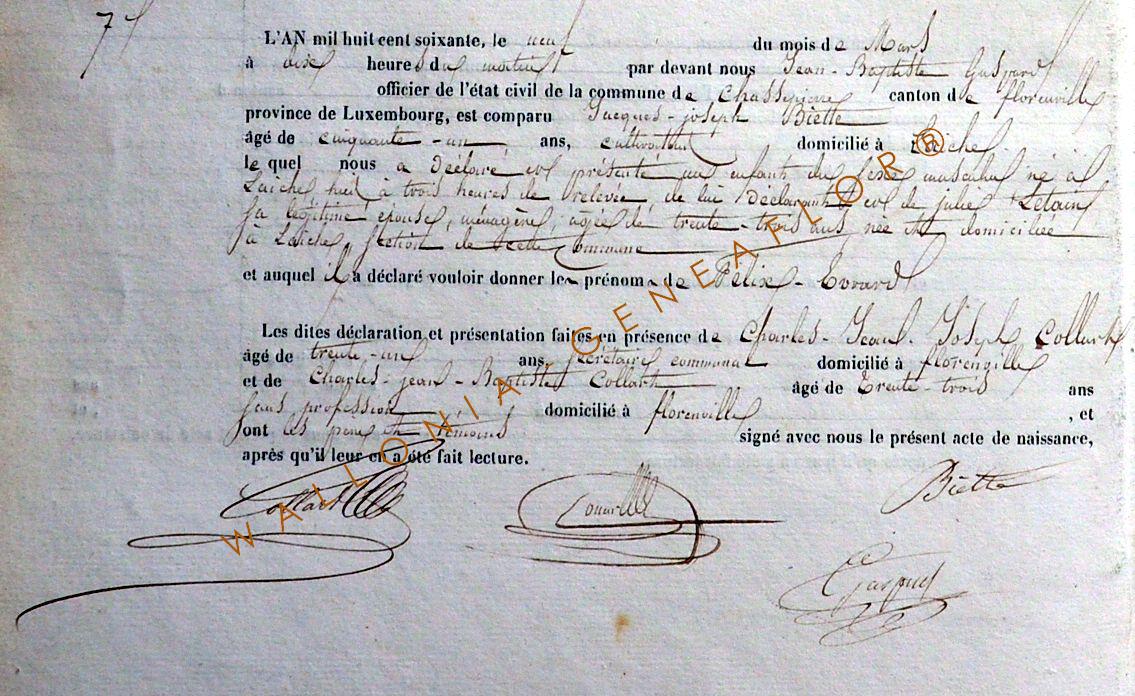 7
L'AN mil huit cent soixante, le neuf du mois de Mars
à dix heures du matin par devant nous Jean-Baptiste Gaspard
officier de l'état civil de la commune de Chassepierre canton de florenville
province de Luxembourg, est comparu Jacques-joseph Biette
âgé de cinquante-un ans, cultivateur domicilié à Laiche
le quel nous a déclaré et présenté un enfant du sexe masculin né à
Laiche huit à trois heures de relevée, de lui déclarant et de julie Létain
sa légitime épouse, ménagère, agée de trente-trois ans, née et domiciliée
à Laiche, section de cette Commune
et auquel il a déclaré vouloir donner les prénoms de Félix-Evrard
Les dites déclaration et présentation faites en présence de Charles-Jean-Joseph Collart
âgé de trente-un ans, secrétaire communal domicilié à florenville
et de Charles-jean-Baptiste Collart âgé de Trente-trois ans
sans profession domicilié à florenville , et
ont les père et témoins signé avec nous le présent acte de naissance,
après qu'il leur en a été fait lecture.
Collart Biette
Gaspard
WALLONIA-GENEAFLOR®